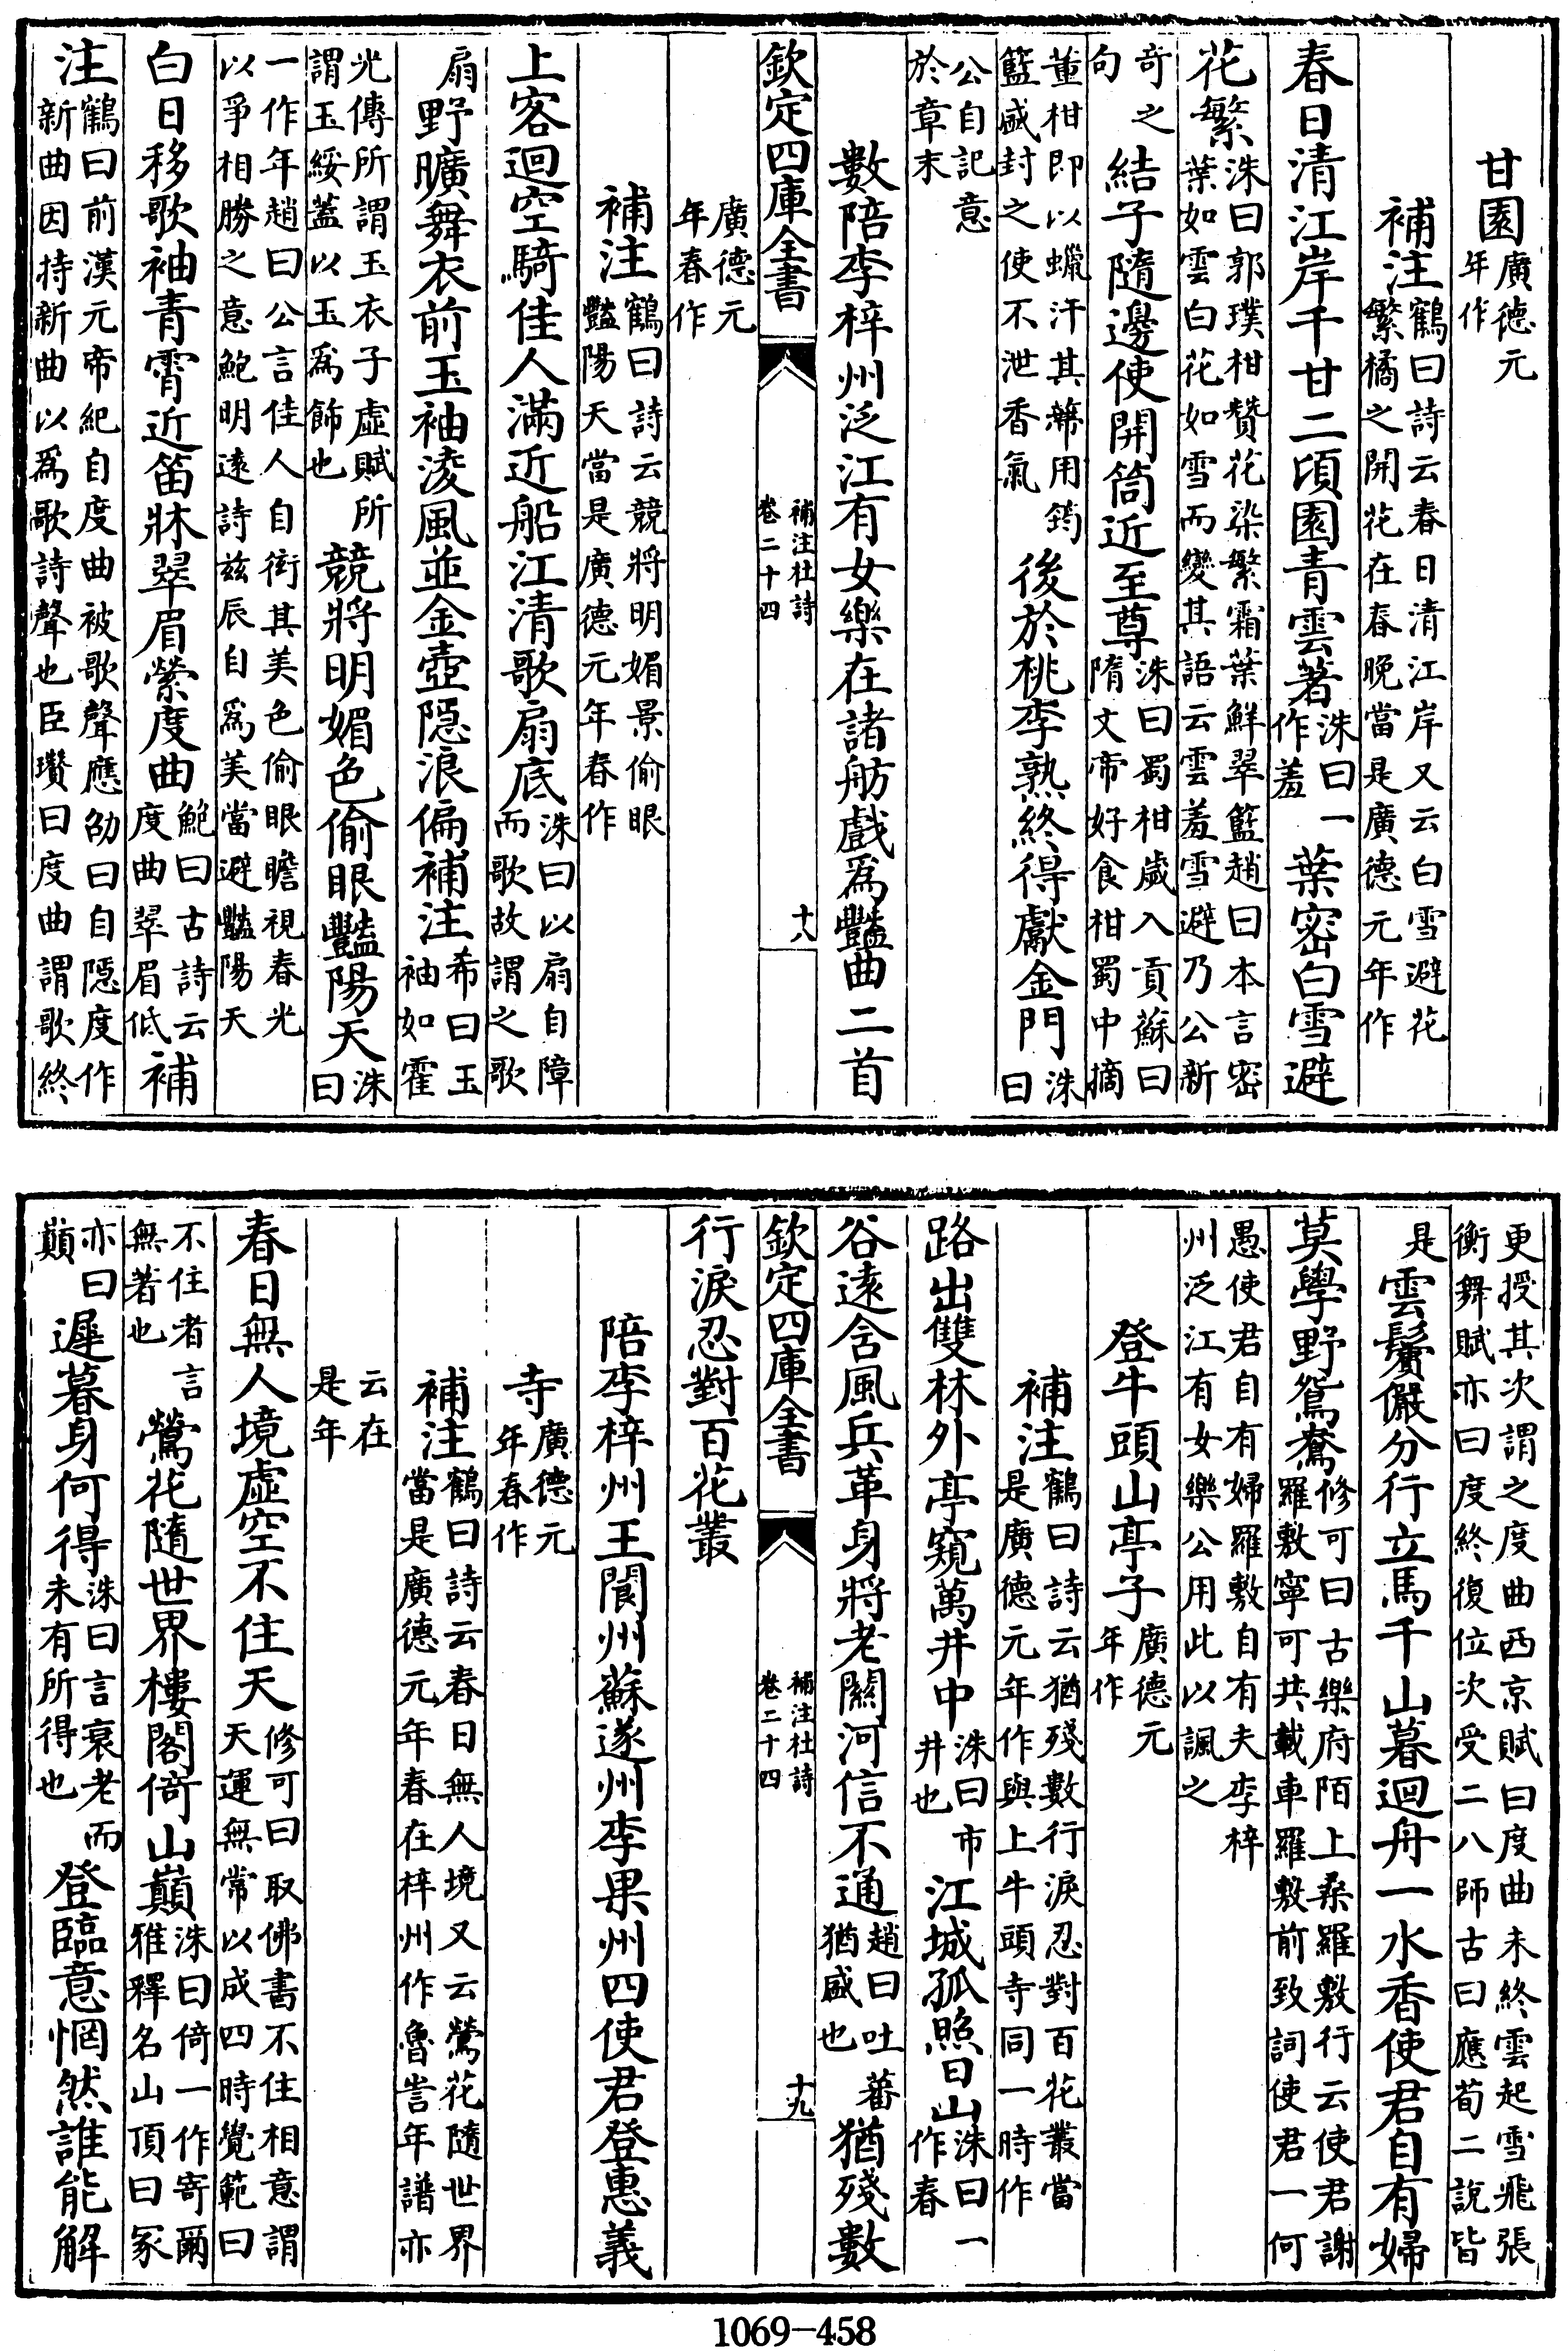 甘園廣德元年作
補注鶴曰詩云春日清江岸又云白雪避花繁橘之開花在春晚當是廣德元年作
春日清江岸千甘二頃園青雲著洙曰一作羞葉密白雪避
花繁洙曰郭璞柑贊花染繁霜葉鮮翠籃趙曰本言密葉如雲白花如雪而變其語云雲羞雪避乃公新
奇之句結子隨邊使開筒近至尊洙曰蜀柑歲入貢蘇曰隋文帝好食柑蜀中摘
董柑即以蠟汗其蔕用筠籃盛封之使不泄香氣後於桃李熟終得獻金門洙曰
公自記意於章末
數陪李梓州泛江有女樂在諸舫戲為豔曲二首
欽定四庫全書
補注杜詩
卷二十四
十八
廣德元年春作
補注鶴曰詩云競將明媚景偷眼豔陽天當是廣德元年春作
上客迴空騎佳人滿近船江清歌扇底洙曰以扇自障而歌故謂之歌
扇野曠舞衣前玉袖淩風並金壺隱浪偏補注希曰玉袖如霍
光傳所謂玉衣子虛賦所謂玉綏蓋以玉為飾也競將明媚色偷眼豔陽天洙曰
一作年趙曰公言佳人自衒其美色偷眼瞻視春光以爭相勝之意鮑明遠詩茲辰自為美當避豔陽天
白日移歌袖青霄近笛牀翠眉縈度曲鮑曰古詩云度曲翠眉低補
注鶴曰前漢元帝紀自度曲被歌聲應劭曰自隱度作新曲因持新曲以為歌詩聲也臣瓚曰度曲謂歌終
更授其次謂之度曲西京賦曰度曲未終雲起雪飛張衡舞賦亦曰度終復位次受二八師古曰應荀二說皆
是雲鬢儼分行立馬千山暮迴舟一水香使君自有婦
莫學野鴛鴦修可曰古樂府陌上桑羅敷行云使君謝羅敷寧可共載車羅敷前致詞使君一何
愚使君自有婦羅敷自有夫李梓州泛江有女樂公用此以諷之
登牛頭山亭子廣德元年作
補注鶴曰詩云猶殘數行淚忍對百花叢當是廣德元年作與上牛頭寺同一時作
路出雙林外亭窺萬井中洙曰市井也江城孤照日山洙曰一作春
谷遠含風兵革身將老關河信不通趙曰吐蕃猶盛也猶殘數
欽定四庫全書
補注杜詩
卷二十四
十九
行淚忍對百花叢
陪李梓州王閬州蘇遂州李果州四使君登惠義
寺廣德元年春作
補注鶴曰詩云春日無人境又云鶯花隨世界當是廣德元年春在梓州作魯訔年譜亦
云在是年
春日無人境虛空不住天修可曰取佛書不住相意謂天運無常以成四時覺範曰
不住者言無著也鶯花隨世界樓閣倚山巔洙曰倚一作寄爾雅釋名山頂曰冢
亦曰巔遲暮身何得洙曰言衰老而未有所得也登臨意惘然誰能解
1069-458